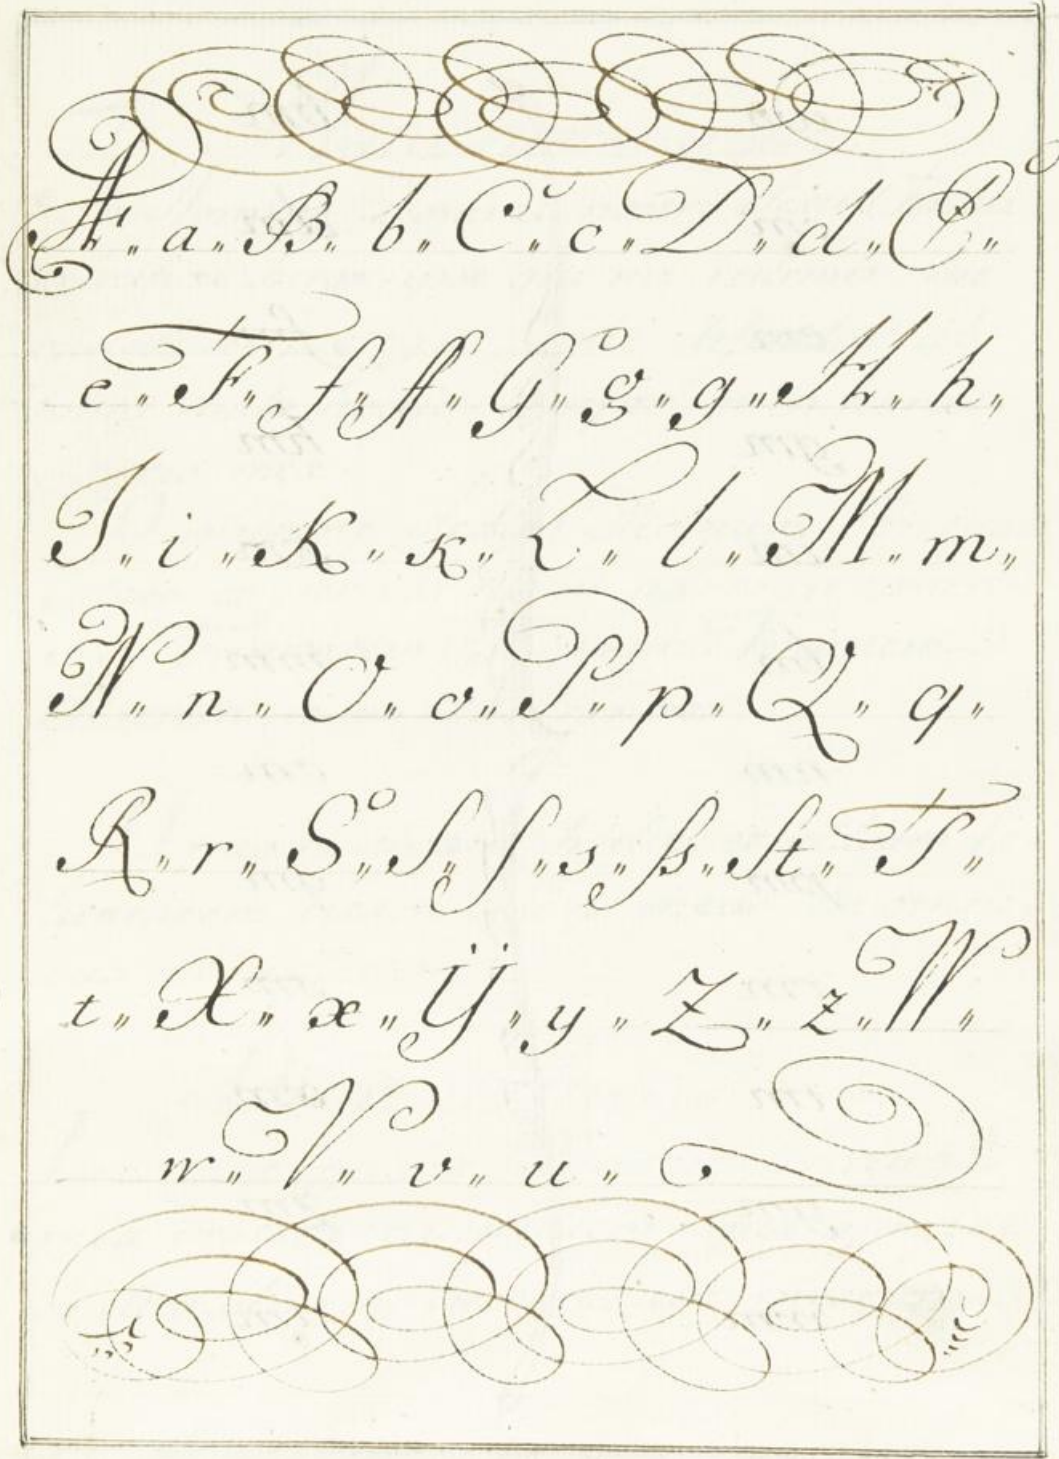 A〃 a〃 B〃 b〃 C〃 c〃 D〃 d〃 E〃
e〃 F〃 f〃 ff〃 G〃 g〃 g〃 H〃 h〃
I〃 i〃 K〃 k〃 L〃 l〃 M〃 m〃
N〃 n〃 O〃 o〃 P〃 p〃 Q〃 q〃
R〃 r〃 S〃 S〃 ſ〃 s〃 ß〃 ſt〃 T〃
t〃 X〃 x〃 Ÿ〃 y〃 Z〃 z〃 W〃
w〃 V〃 v〃 u〃